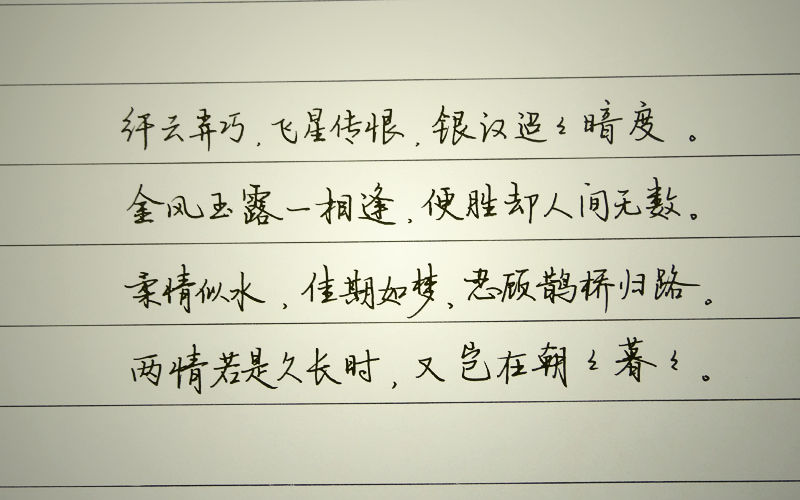 纤云弄巧,飞星传恨,银汉迢々暗度。
金风玉露一相逢,便胜却人间无数。
柔情似水,佳期如梦,忍顾鹊桥归路。
两情若是久长时,又岂在朝々暮々。